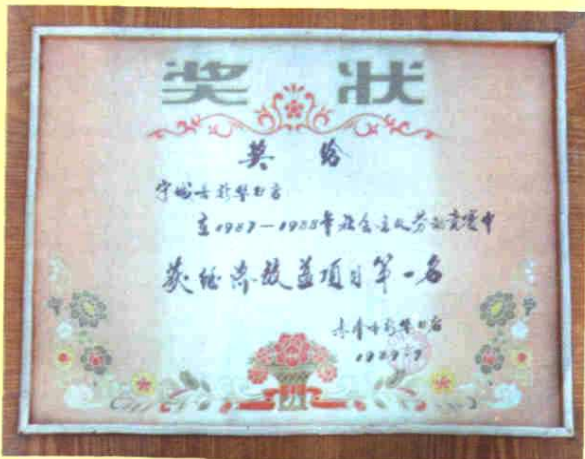 奖状
奖给
宁城县新华书店
在1987—1988年社会主义劳动竞赛中
获经济效益项目第一名
赤峰市新华书店
1989·9